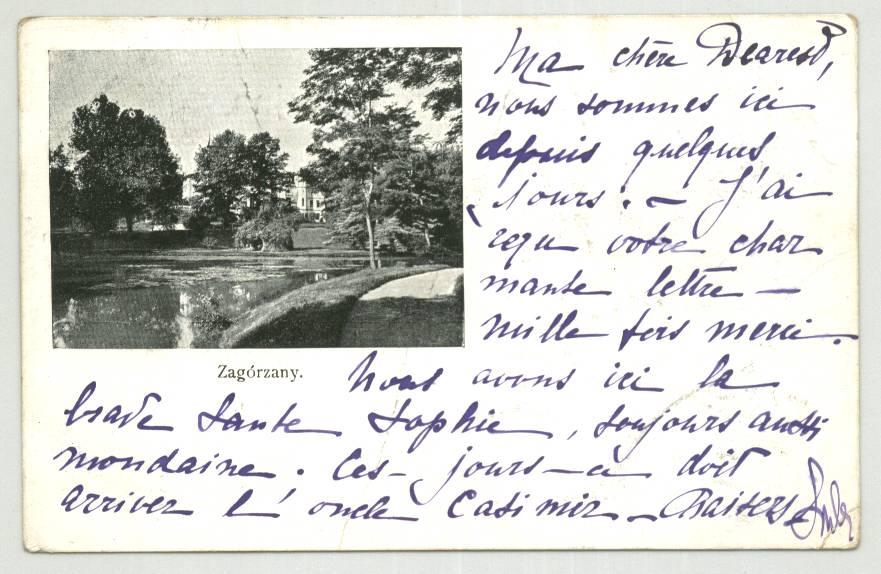 Ma chère Dearest,
nous sommes ici
depuis quelques
jours. – J'ai
reçu votre char
mante lettre –
mille fois merci.
Zagórzany.
Nous avons ici la
brave tante Sophie, toujours aussi
mondaine. Ces-jours-ci doit
arriver l'oncle Casimir – Baisers